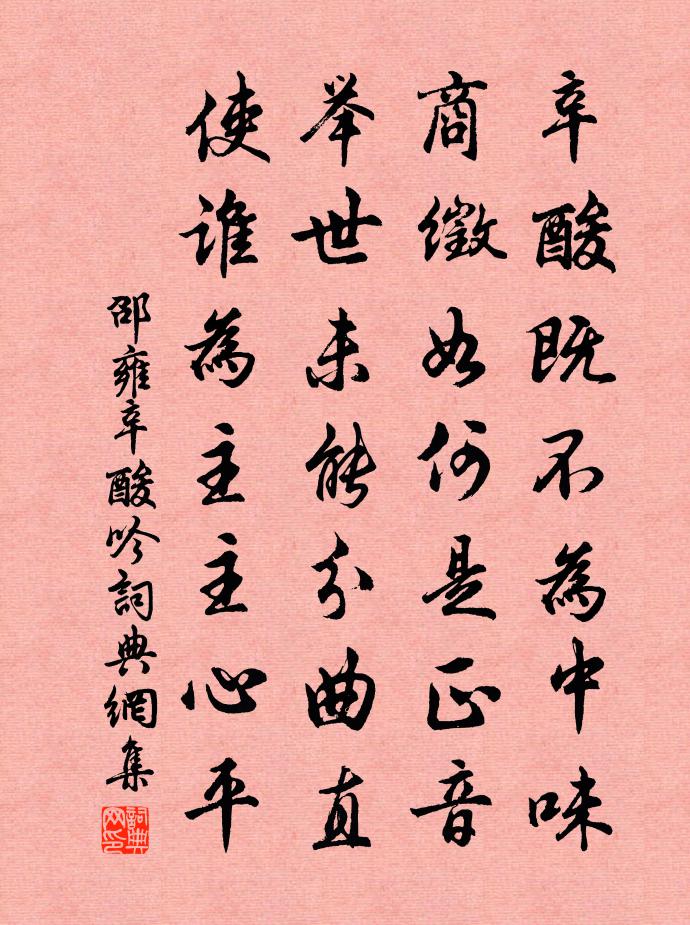 辛酸既不為中味
商徵如何是正音
举世未能分曲直
使谁為主主心平
邵雍辛酸吟詞典網集
詞典網印